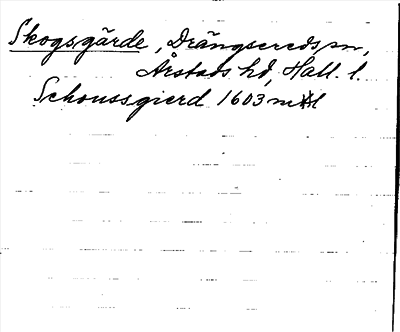 Skogsgärde, Drängsereds sn,
Årstads hd, Hall. l.
Schoussgierd 1603